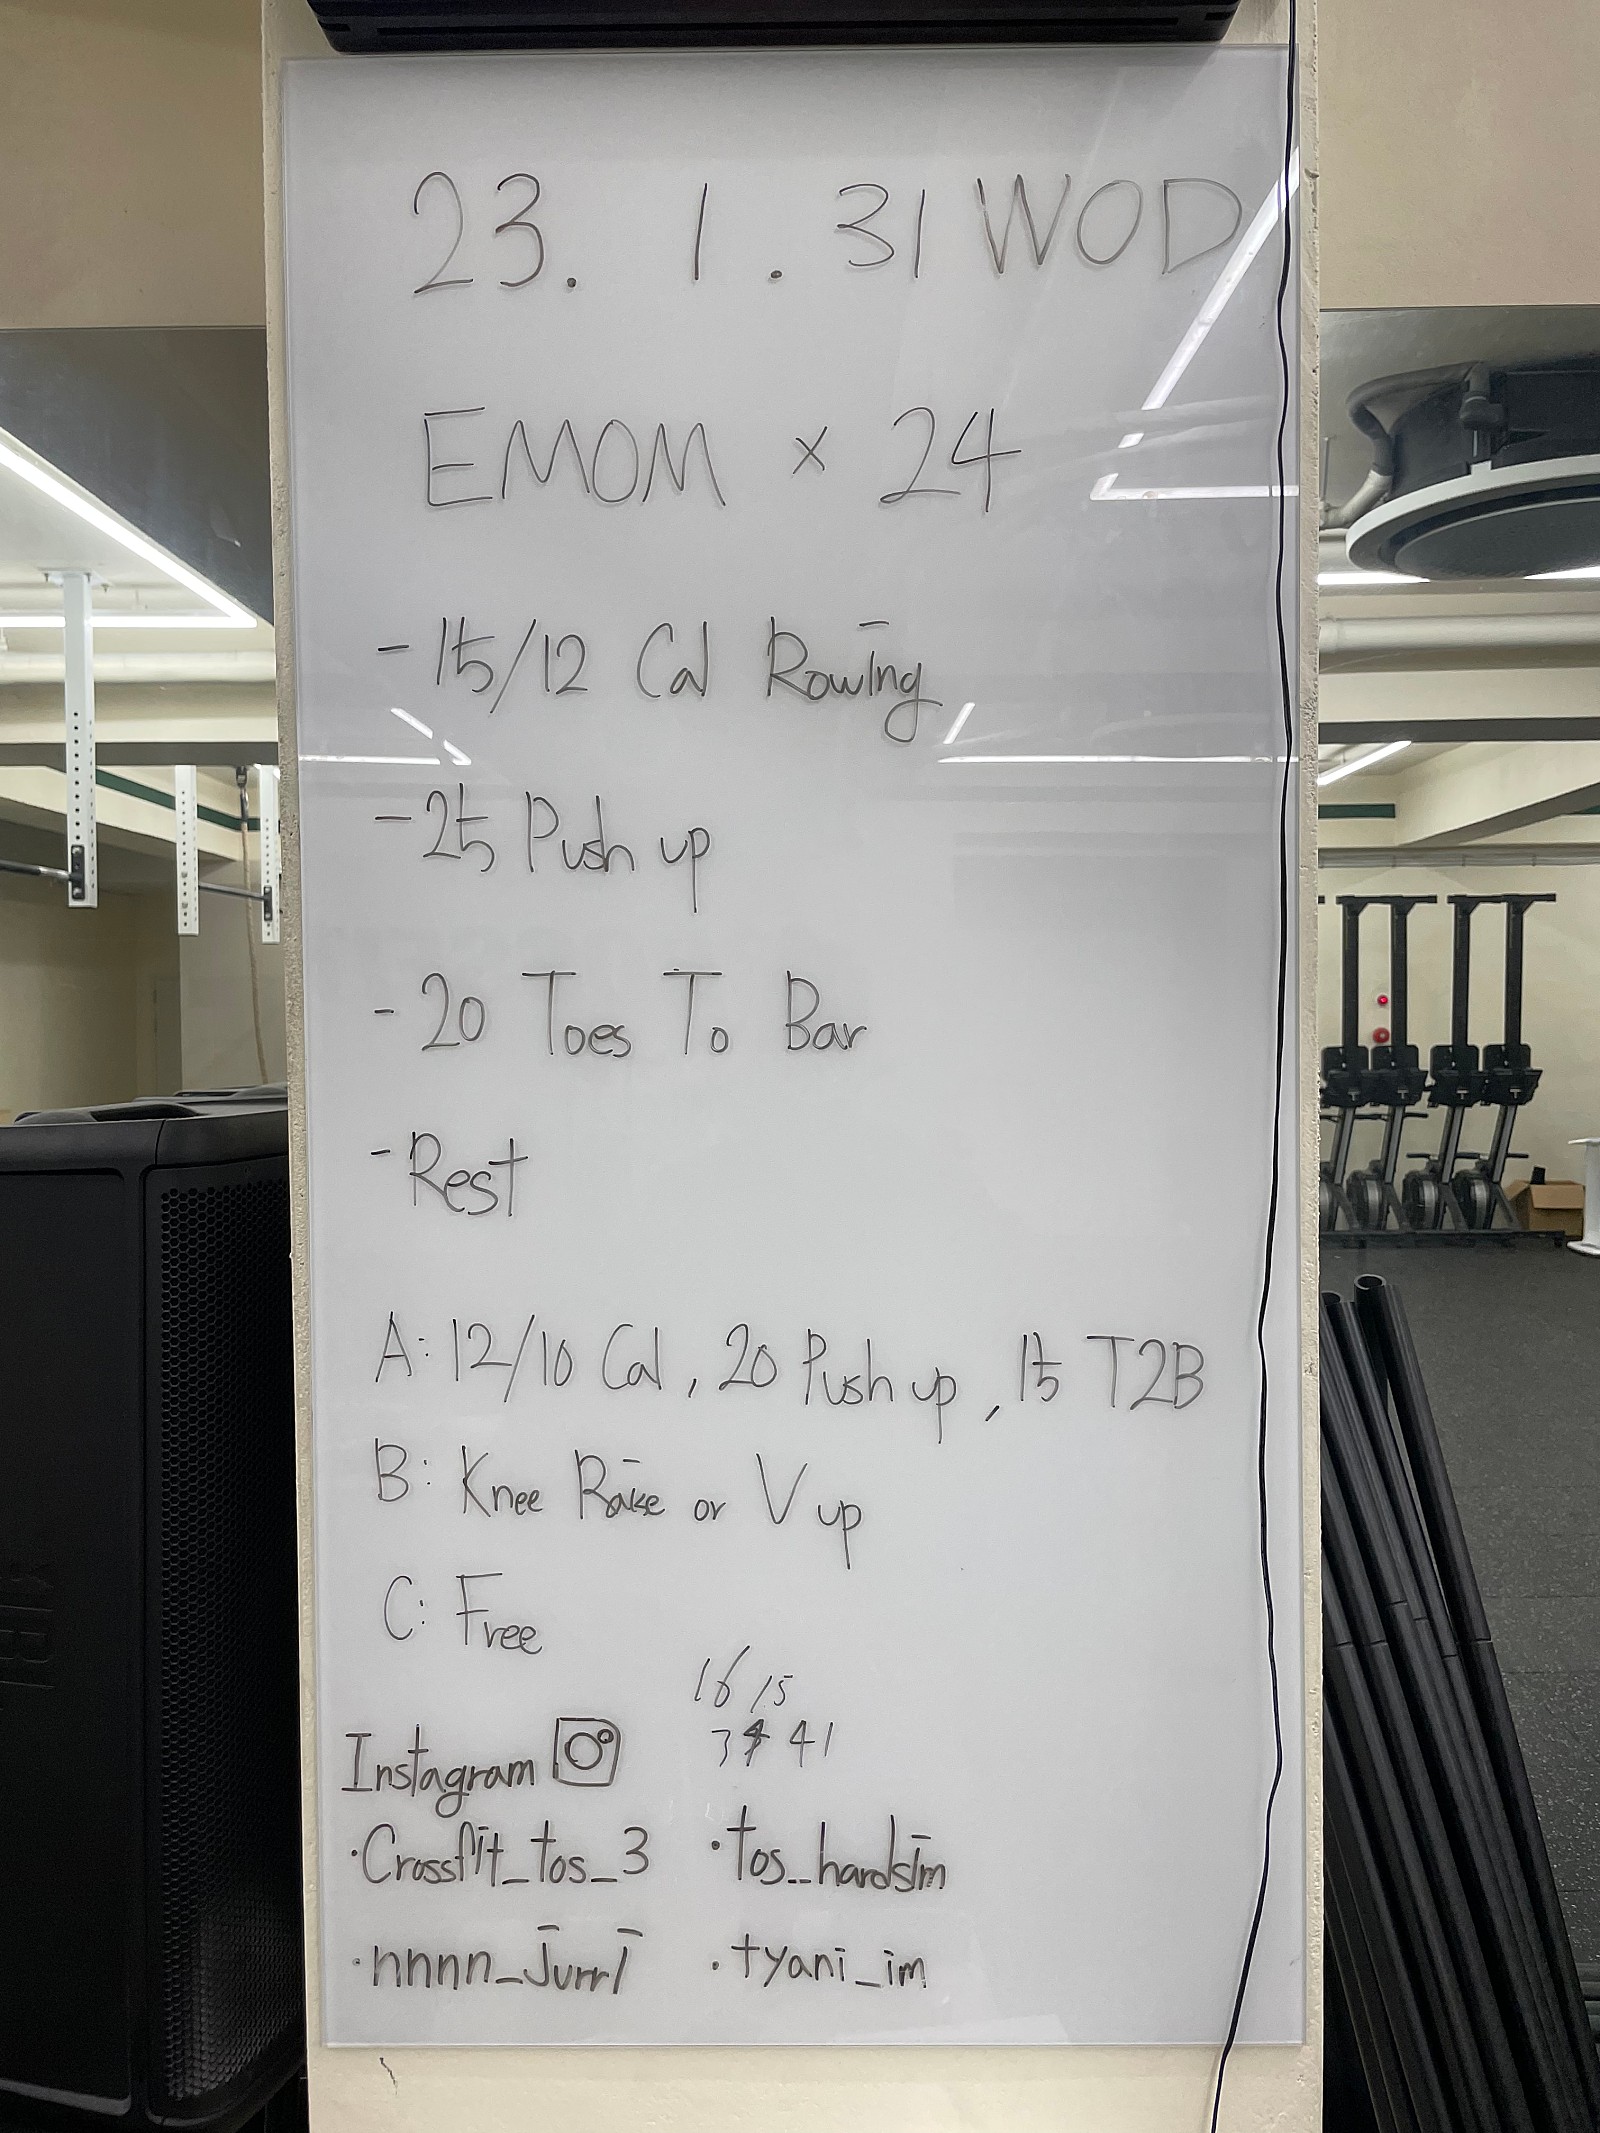 23. 1. 31 WOD
EMOM × 24
- 15/12 Cal Rowing
- 25 Push up
- 20 Toes To Bar
- Rest
A: 12/10 Cal, 20 Push up, 15 T2B
B: Knee Raise or V up
C: Free
16 15
41
Instagram
·Crossfit_tos_3
·tos_hardsim
·nnnn_jurri
·tyani_im